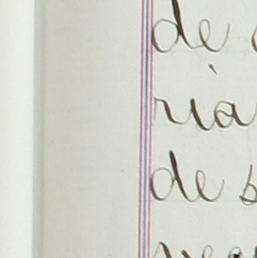 de
ria
de s